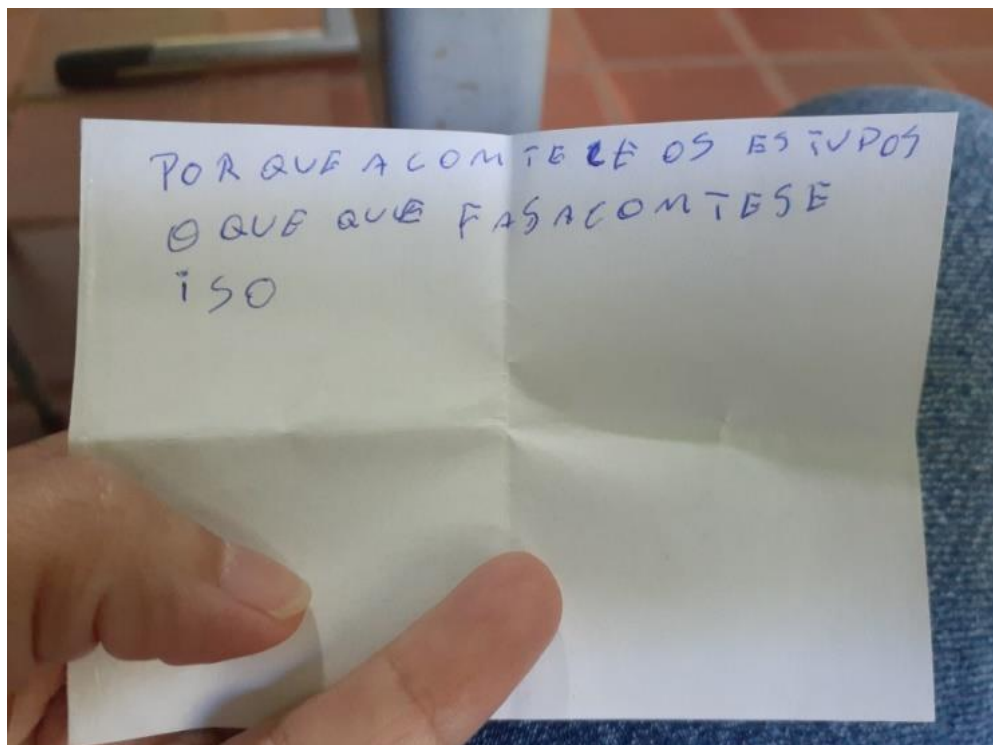 POR QUE ACOMTECE OS ESTUPOS
O QUE QUE FASACOMTESE
ISO